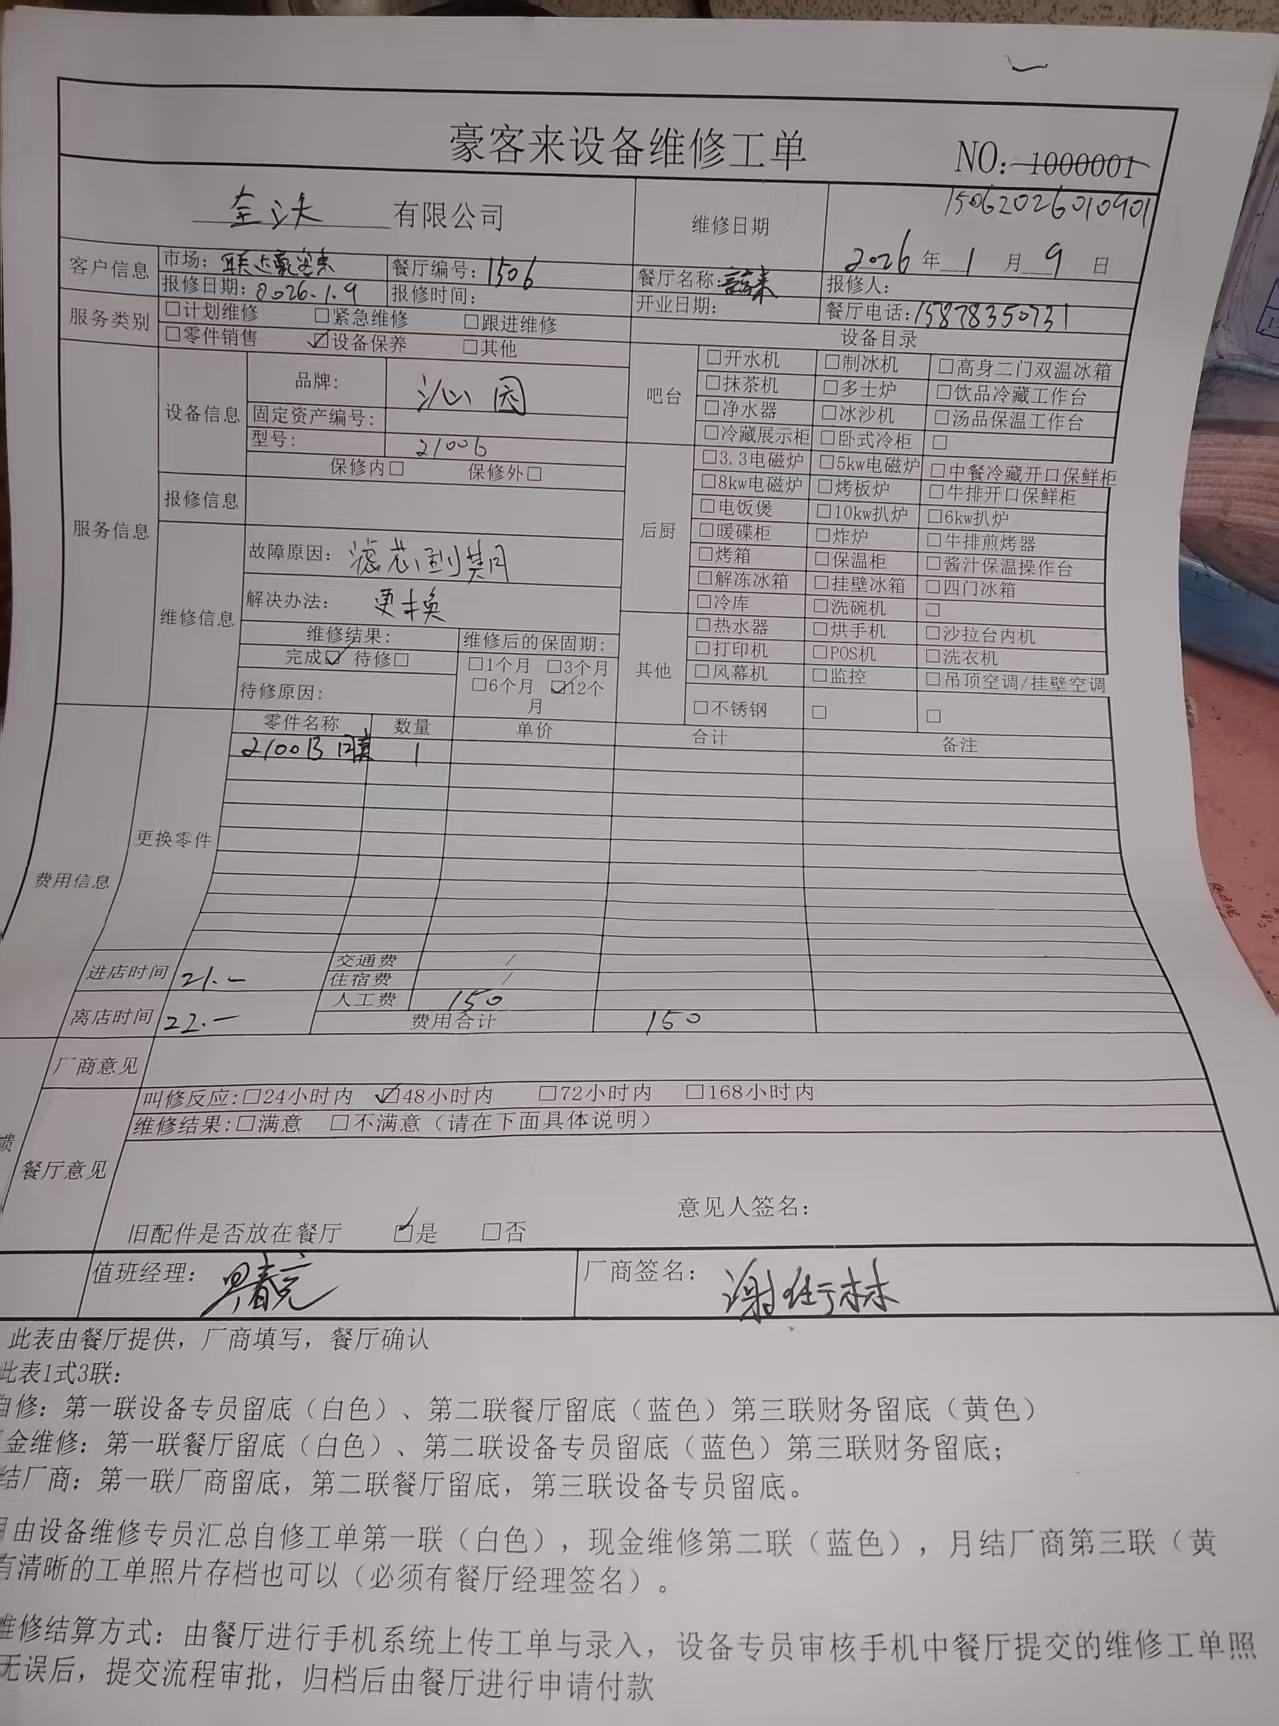 豪客来设备维修工单 NO: 1000001
15062026010901
有限公司 维修日期 2026年1月9日
客户信息 市场: 联达豪客来 餐厅编号: 1506 餐厅名称: 报修人:
报修日期: 2026.1.9 报修时间: 开业日期: 餐厅电话: 15878350731
服务类别 □计划维修 □紧急维修 □跟进维修 设备目录
□零件销售 ☑设备保养 □其他
服务信息 设备信息 品牌: 沁园
固定资产编号:
型号: 2100G
保修内□ 保修外□
报修信息
维修信息 故障原因: 滤芯到期
解决办法: 更换
维修结果: 维修后的保固期:
完成☑ 待修□ □1个月 □3个月
待修原因: □6个月 ☑12个月
吧台 □开水机 □制冰机 □高身二门双温冰箱
□抹茶机 □多士炉 □饮品冷藏工作台
□净水器 □冰沙机 □汤品保温工作台
□冷藏展示柜 □卧式冷柜 □
后厨 □3.3电磁炉 □5kw电磁炉 □中餐冷藏开口保鲜柜
□8kw电磁炉 □烤板炉 □牛排开口保鲜柜
□电饭煲 □10kw扒炉 □6kw扒炉
□暖碟柜 □炸炉 □牛排煎烤器
□烤箱 □保温柜 □酱汁保温操作台
□解冻冰箱 □挂壁冰箱 □四门冰箱
□冷库 □洗碗机 □
其他 □热水器 □烘手机 □沙拉台内机
□打印机 □POS机 □洗衣机
□风幕机 □监控 □吊顶空调/挂壁空调
□不锈钢 □ □
费用信息 更换零件 零件名称 数量 单价 合计 备注
2100B 膜 1
进店时间 21.- 交通费 /
住宿费 /
离店时间 22.- 人工费 150
费用合计 150
厂商意见
馈 餐厅意见 叫修反应:□24小时内 ☑48小时内 □72小时内 □168小时内
维修结果:□满意 □不满意（请在下面具体说明）
意见人签名:
旧配件是否放在餐厅 ☑是 □否
值班经理: 厂商签名:
此表由餐厅提供，厂商填写，餐厅确认
此表1式3联:
自修: 第一联设备专员留底（白色）、第二联餐厅留底（蓝色）第三联财务留底（黄色）
金维修: 第一联餐厅留底（白色）、第二联设备专员留底（蓝色）第三联财务留底;
结厂商: 第一联厂商留底，第二联餐厅留底，第三联设备专员留底。
由设备维修专员汇总自修工单第一联（白色），现金维修第二联（蓝色），月结厂商第三联（黄
有清晰的工单照片存档也可以（必须有餐厅经理签名）。
维修结算方式: 由餐厅进行手机系统上传工单与录入，设备专员审核手机中餐厅提交的维修工单照
无误后，提交流程审批，归档后由餐厅进行申请付款